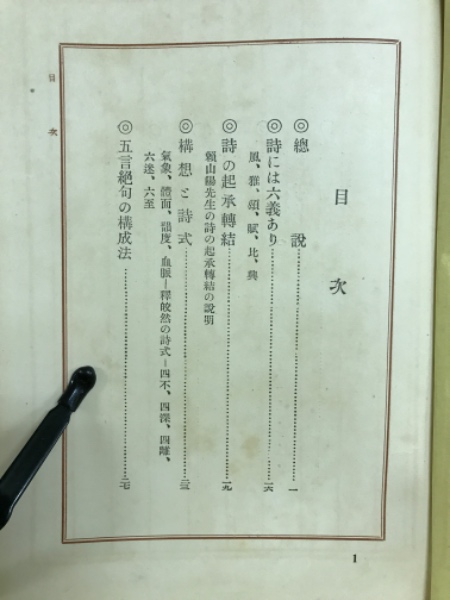 目次
◎總說……一
◎詩には六義あり……一六
風、雅、頌、賦、比、興
◎詩の起承轉結……一九
賴山陽先生の詩の起承轉結の説明
◎構想と詩式……二三
氣象、體面、語度、血脈―釋皎然の詩式―四不、四深、四離、
六迷、六至
◎五言絕句の構成法……二七
目次
1